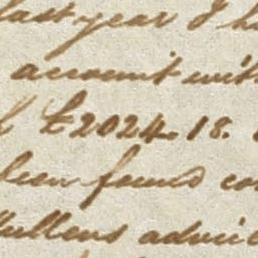 last year I h
account with
£2024.18.
been found co
Mullens advice